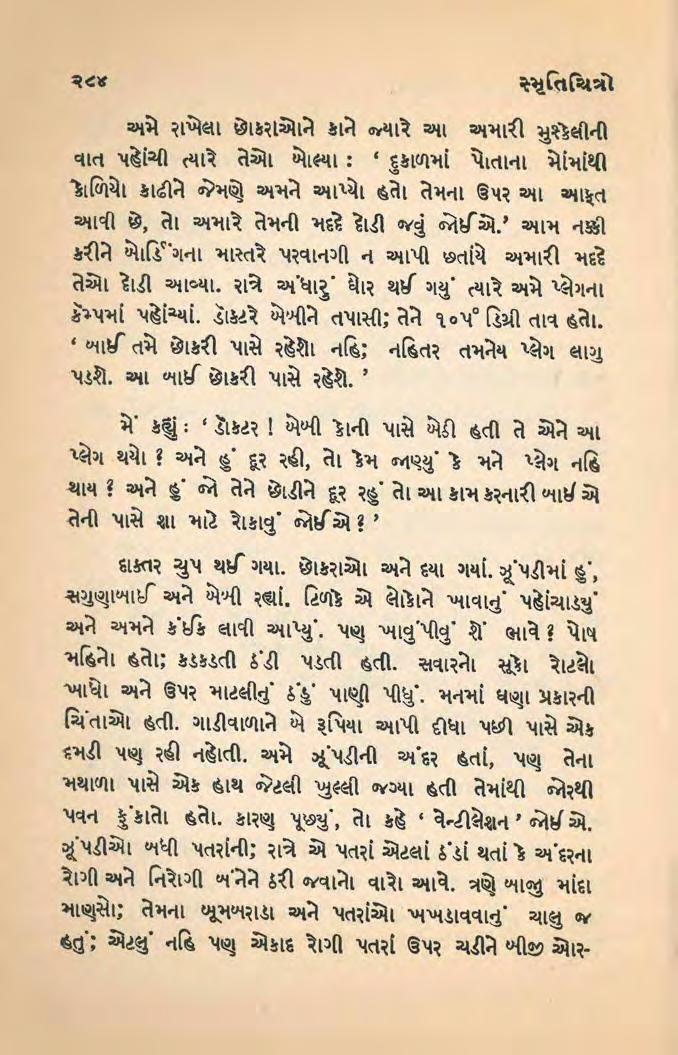 ૨૮૪ સ્મૃતિચિત્રો
અમે રાખેલા છોકરાઓને કાને જ્યારે આ અમારી મુશ્કેલીની
વાત પહોંચી ત્યારે તેઓ બોલ્યા : ‘ દુકાળમાં પોતાના મોંમાંથી
કોળિયો કાઢીને જેમણે અમને આપ્યો હતો તેમના ઉપર આ આફત
આવી છે, તો અમારે તેમની મદદે દોડી જવું જોઈએ.’ આમ નક્કી
કરીને બોર્ડિંગના માસ્તરે પરવાનગી ન આપી છતાંયે અમારી મદદે
તેઓ દોડી આવ્યા. રાત્રે અંધારું ઘોર થઈ ગયું ત્યારે અમે પ્લેગના
કૅમ્પમાં પહોંચ્યાં. ડૉકટરે બેબીને તપાસી; તેને ૧૦૫° ડિગ્રી તાવ હતો.
‘ બાઈ તમે છોકરી પાસે રહેશો નહિ; નહિતર તમનેય પ્લેગ લાગુ
પડશે. આ બાઈ છોકરી પાસે રહેશે. ’
મેં કહ્યું : ‘ ડૉકટર ! બેબી કોની પાસે બેઠી હતી તે એને આ
પ્લેગ થયો ? અને હું દૂર રહી, તો કેમ જાણ્યું કે મને પ્લેગ નહિ
થાય ? અને હું જો તેને છોડીને દૂર રહું તો આ કામ કરનારી બાઈએ
તેની પાસે શા માટે રોકાવું જોઈએ ? ’
દાક્તર ચુપ થઈ ગયા. છોકરાઓ અને દયા ગયાં. ઝૂંપડીમાં હું,
સગુણાબાઈ અને બેબી રહ્યાં. ટિળકે એ લોકોને ખાવાનું પહોંચાડયું
અને અમને કંઈક લાવી આપ્યું. પણ ખાવુંપીવું શેં ભાવે ? પોષ
મહિનો હતો; કડકડતી ઠંડી પડતી હતી. સવારનો સૂકો રોટલો
ખાધો અને ઉપર માટલીનું ઠંડું પાણી પીધું. મનમાં ઘણા પ્રકારની
ચિંતાઓ હતી. ગાડીવાળાને બે રૂપિયા આપી દીધા પછી પાસે એક
દમડી પણ રહી નહોતી. અમે ઝૂંપડીની અંદર હતાં, પણ તેના
મથાળા પાસે એક હાથ જેટલી ખુલ્લી જગ્યા હતી તેમાંથી જોરથી
પવન ફુંકાતો હતો. કારણ પૂછ્યું, તો કહે ‘ વેન્ટીલેશન ’ જોઈએ.
ઝૂંપડીઓ બધી પતરાંની; રાત્રે એ પતરાં એટલાં ઠંડાં થતાં કે અંદરના
રોગી અને નિરોગી બંનેને ઠરી જવાનો વારો આવે. ત્રણે બાજુ માંદા
માણસો; તેમના બૂમબરાડા અને પતરાંઓ ખખડાવવાનું ચાલુ જ
હતું; એટલું નહિ પણ એકાદ રોગી પતરાં ઉપર ચડીને બીજી ઓર-